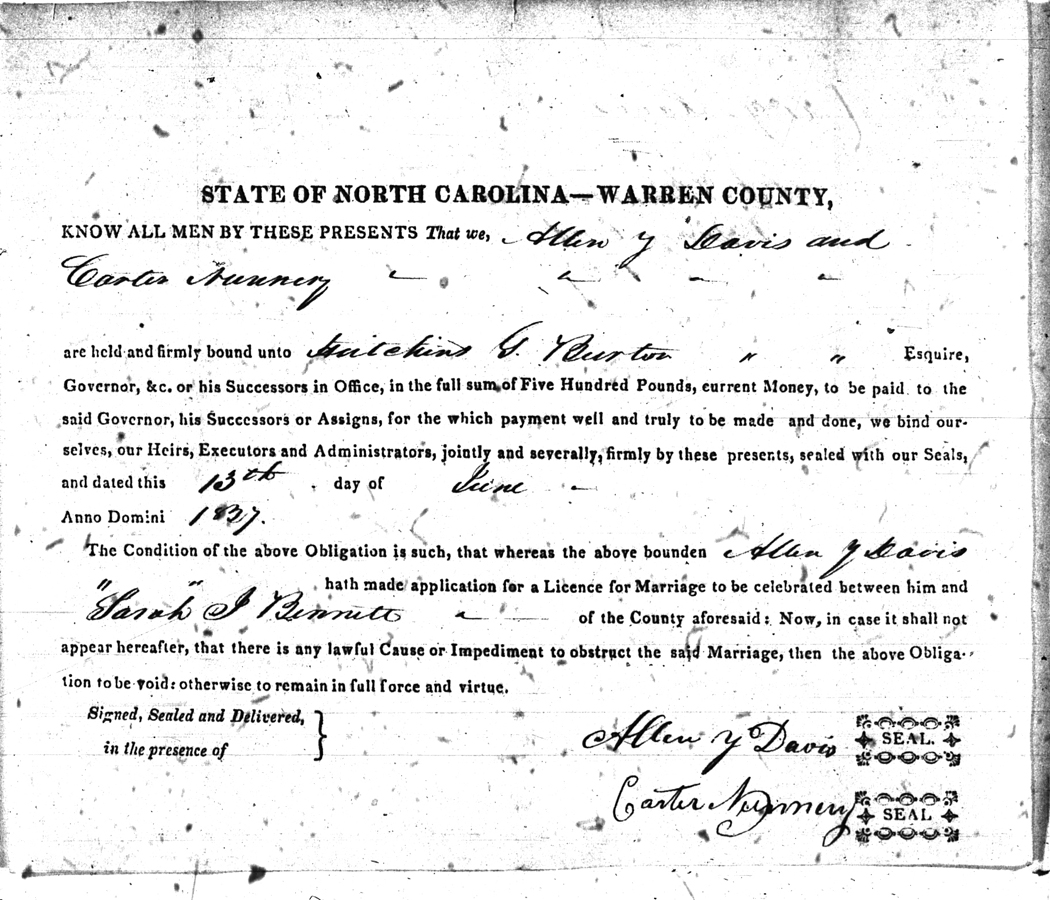 STATE OF NORTH CAROLINA—WARREN COUNTY,
KNOW ALL MEN BY THESE PRESENTS That we, Allen Y Davis and
Carter Nunnery " " " "
are held and firmly bound unto Hutchins G. Burton " " Esquire,
Governor, &c. or his Successors in Office, in the full sum of Five Hundred Pounds, current Money, to be paid to the
said Governor, his Successors or Assigns, for the which payment well and truly to be made and done, we bind our-
selves, our Heirs, Executors and Administrators, jointly and severally, firmly by these presents, sealed with our Seals,
and dated this 13th day of June
Anno Domini 1837.
The Condition of the above Obligation is such, that whereas the above bounden Allen Y Davis
" " hath made application for a Licence for Marriage to be celebrated between him and
Sarah J Bennett of the County aforesaid: Now, in case it shall not
appear hereafter, that there is any lawful Cause or Impediment to obstruct the said Marriage, then the above Obliga-
tion to be void: otherwise to remain in full force and virtue.
Signed, Sealed and Delivered,
in the presence of
Allen Y Davis SEAL.
Carter Nunnery SEAL